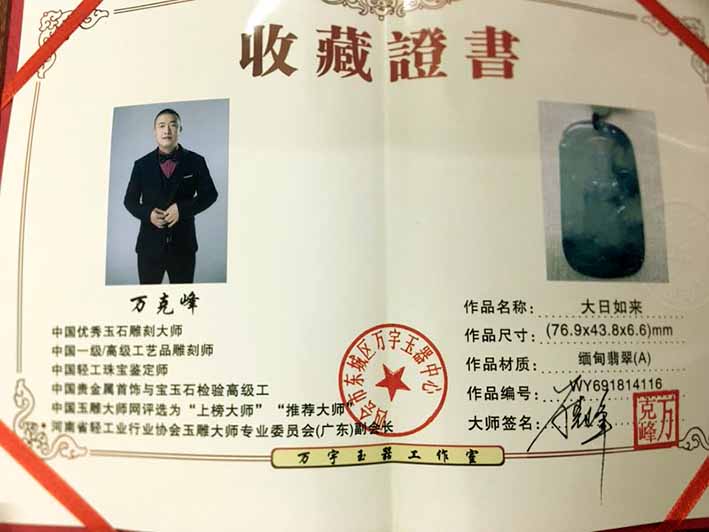 收藏證書
万克峰
中国优秀玉石雕刻大师
中国一级/高级工艺品雕刻师
中国轻工珠宝鉴定师
中国贵金属首饰与宝玉石检验高级工
中国玉雕大师网评选为“上榜大师” “推荐大师”
河南省轻工业行业协会玉雕大师专业委员会(广东)副会长
会市东城区万宇玉器中心
作品名称: 大日如来
作品尺寸: (76.9x43.8x6.6)mm
作品材质: 缅甸翡翠(A)
作品编号: WY691814116
大师签名:
万克峰
万宇玉器工作室